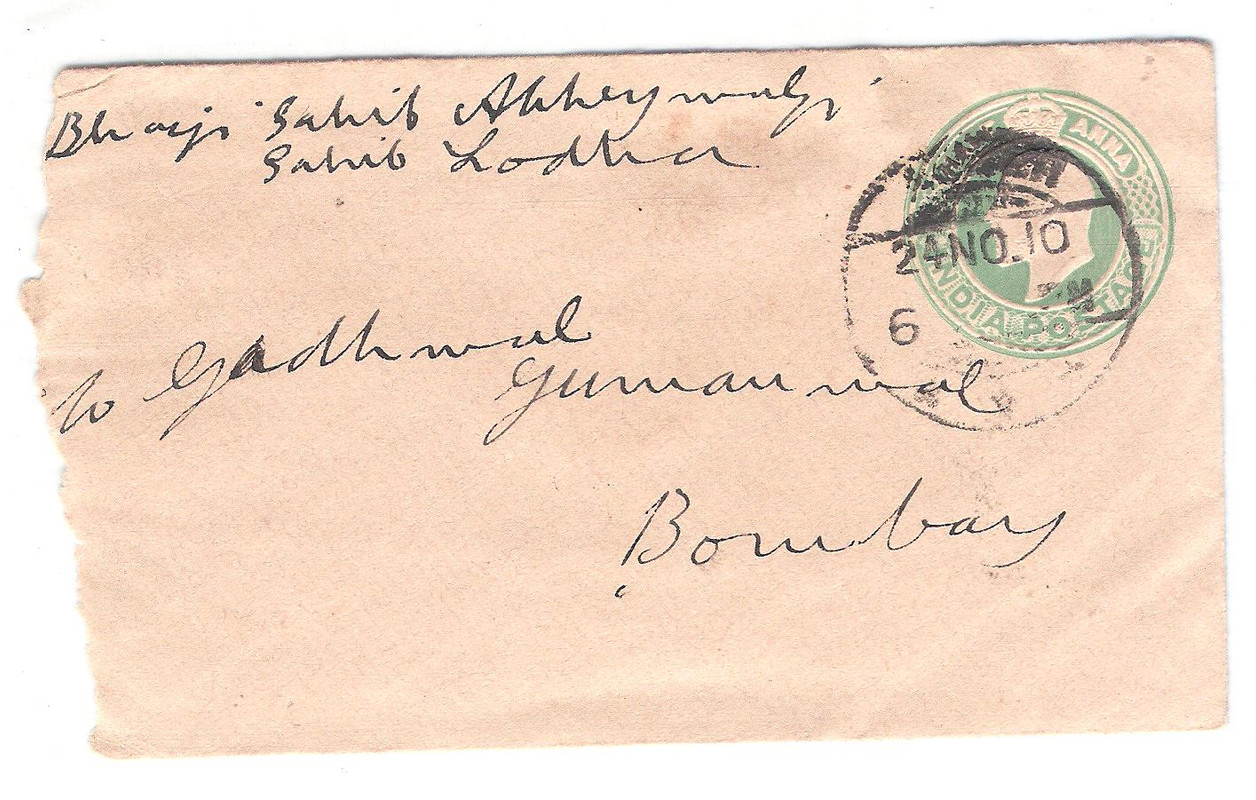 Bhaiji Sahib Abheymalji
Sahib Lodha
ANNA
INDIA POSTAGE
24 NO.10
6 PM
c/o Gadhmal
Gumanmal
Bombay